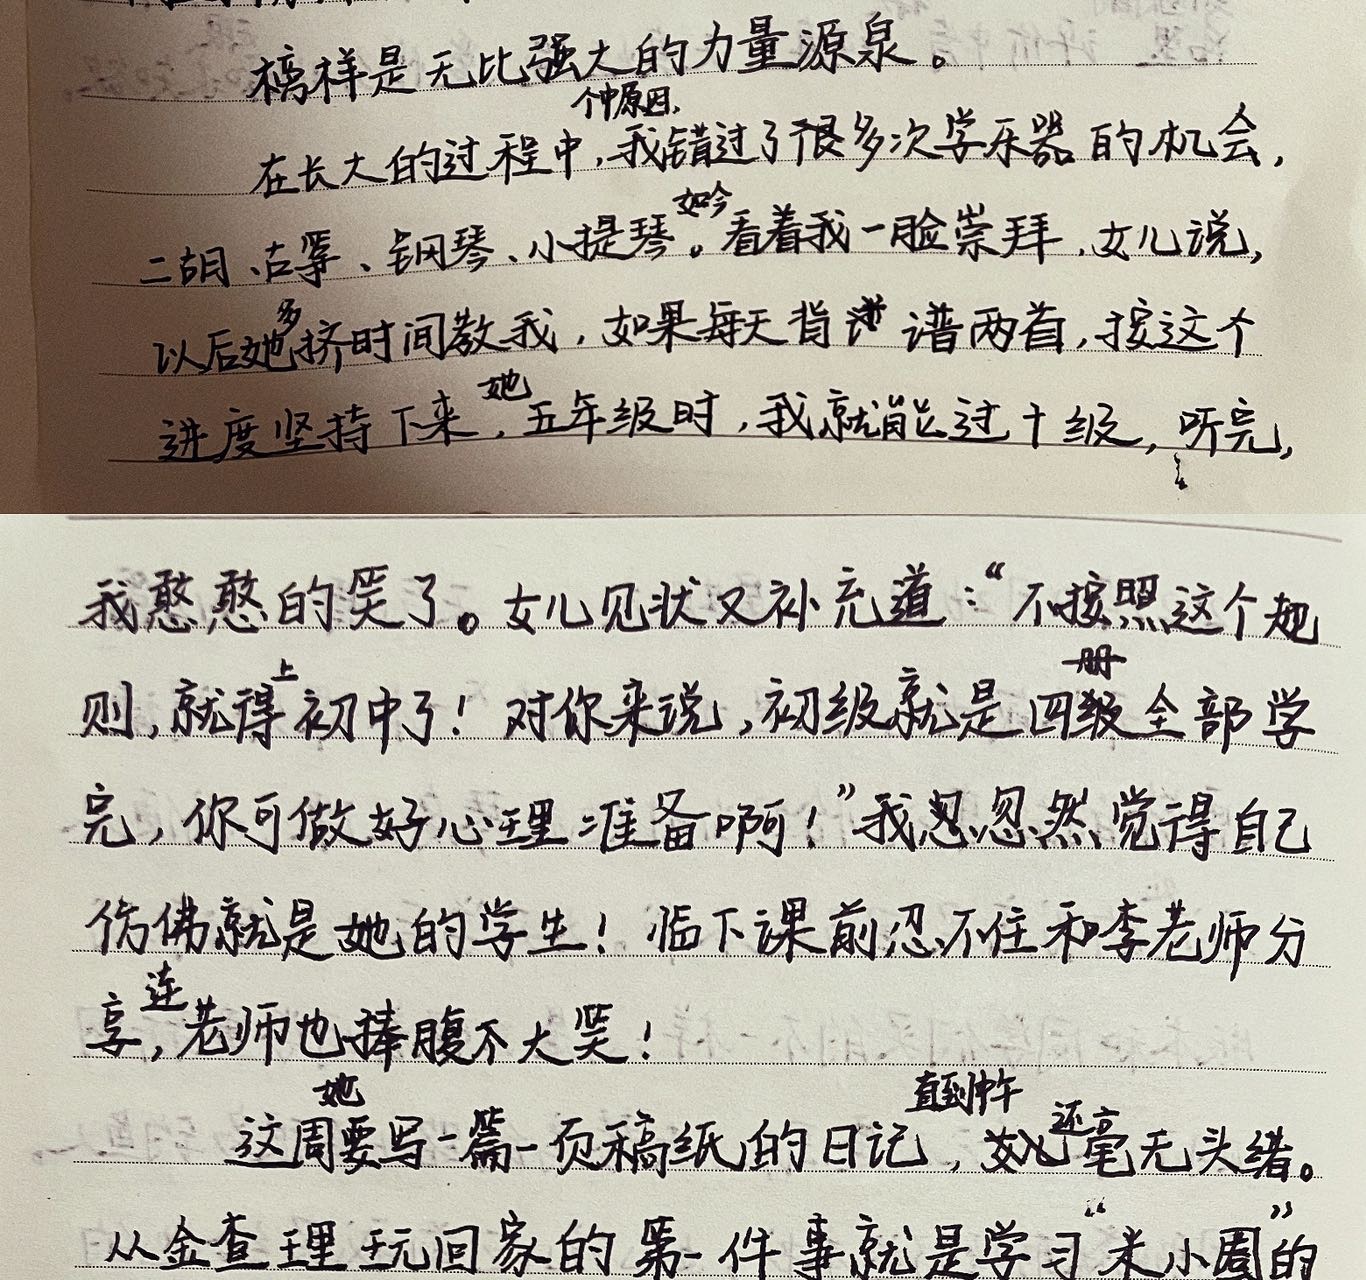 榜样是无比强大的力量源泉。
个中原因，
在长大的过程中，我错过了很多次学乐器的机会，
如今
二胡、古筝、钢琴、小提琴。看着我一脸崇拜，女儿说，
多
以后她挤时间教我，如果每天背谱两首，按这个
她
进度坚持下来，五年级时，我就能过十级，听完，
我憨憨的笑了。女儿见状又补充道：“不按照这个规
上 册
则，就得初中了！对你来说，初级就是四级全部学
完，你可做好心理准备啊！”我忽忽然觉得自己
仿佛就是她的学生！临下课前忍不住和李老师分
连
享，老师也捧腹不大笑！
她 直到中午
还
这周要写一篇一页稿纸的日记，毫无头绪。
从金查理玩回家的第一件事就是学习“米小圈”的